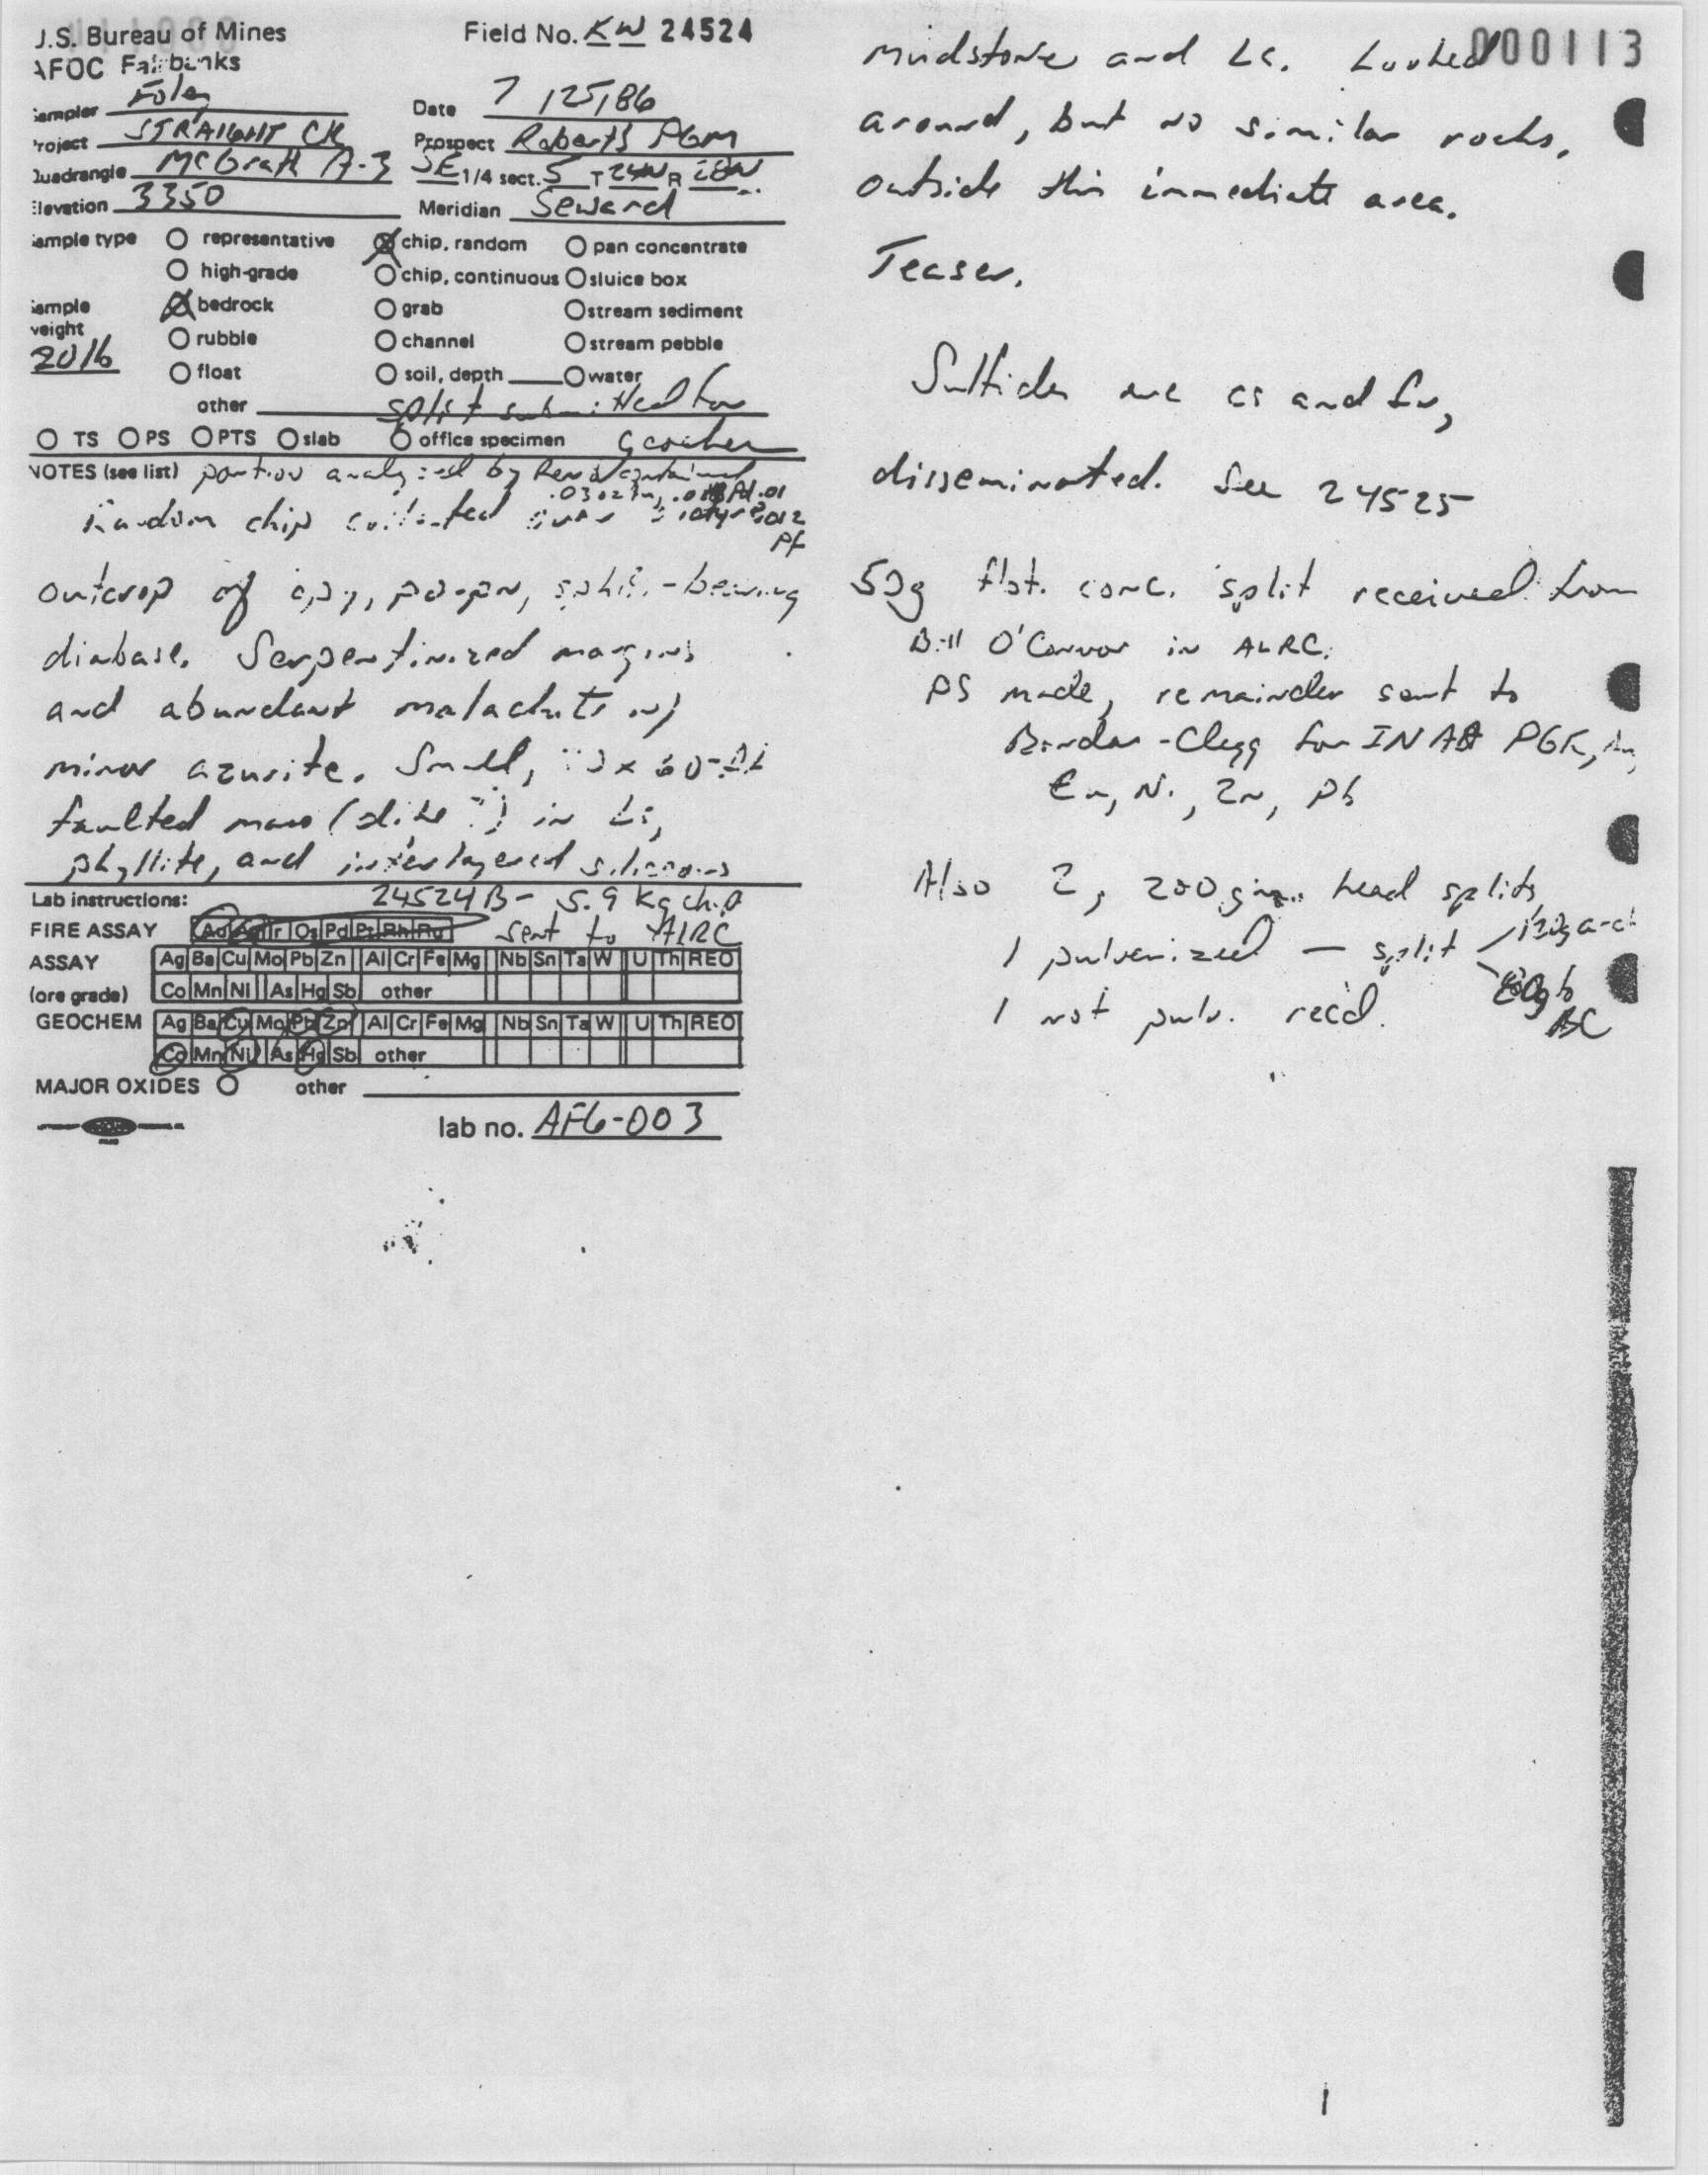 J.S. Bureau of Mines
AFOC Fairbanks
Field No. KW 24524
ampler Foley
Date 7/25/86
roject STRAIGHT CK
Prospect Roberts PGM
Quadrangle McGrath A-3
SE 1/4 sect. 5 T 24N R 28W
Elevation 3350
Meridian Seward
ample type
representative
chip, random
pan concentrate
high-grade
chip, continuous
sluice box
ample weight 20 lb
bedrock
grab
stream sediment
rubble
channel
stream pebble
float
soil, depth
water
other split submitted for
TS PS PTS slab office specimen geochem
NOTES (see list) portion analyzed by
Random chip collected
Pt
outcrop of cpy, po-pn, -bearing
diabase. Serpentinized margins
and abundant malachite w/
minor azurite. Small,
faulted mass (dike?) in Ls,
phyllite, and interlayered siliceous
Lab instructions: 24524B - 5.9 kg chip
FIRE ASSAY Au Ag Ir Os Pd Pt Rh Ru sent to ALRC
ASSAY Ag Ba Cu Mo Pb Zn Al Cr Fe Mg Nb Sn Ta W U Th REO
(ore grade) Co Mn Ni As Hg Sb other
GEOCHEM Ag Ba Cu Mo Pb Zn Al Cr Fe Mg Nb Sn Ta W U Th REO
Co Mn Ni As Hg Sb other
MAJOR OXIDES other
lab no. AF6-003
000113
mudstone and Ls. Looked
around, but no similar rocks,
outside this immediate area.
Teaser.
Sulfides are cs and fn,
disseminated. See 24525
50g flot. conc. split received from
Bill O'Connor in ALRC.
PS made, remainder sent to
Bondar-Clegg for INAA PGE, Au,
Cu, Ni, Zn, Pb
Also 2, 200 gm. head splits
1 pulverized — split
1 not pulv. rec'd.
BC